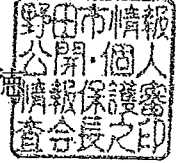 徳
野田市情報
公開・個人
情報保護審
査会長之印